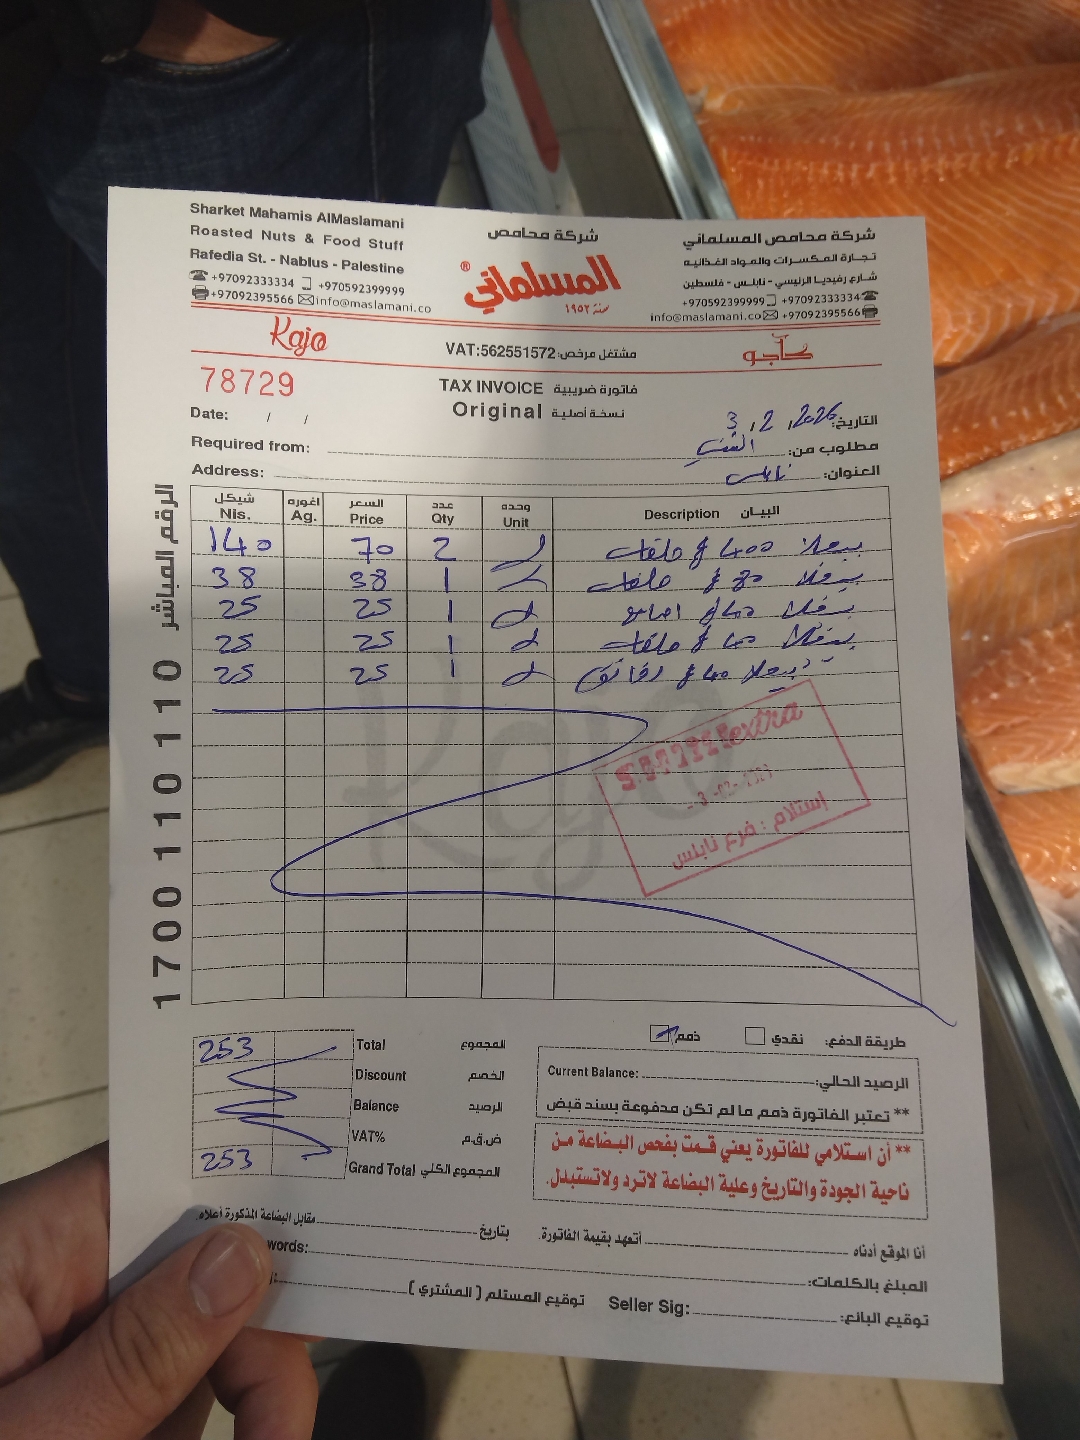 Sharket Mahamis AlMaslamani
Roasted Nuts & Food Stuff
Rafedia St. - Nablus - Palestine
+97092333334 +970592399999
+97092395566 info@maslamani.co
شركة محامص
المسلماني®
سنة ١٩٥٢
شركة محامص المسلماني
تجارة المكسرات والمواد الغذائية
شارع رفيديا الرئيسي - نابلس - فلسطين
+970592399999 +97092333334
info@maslamani.co +97092395566
Kajo
VAT:562551572 مشتغل مرخص:
كاجو
78729
TAX INVOICE فاتورة ضريبية
Original نسخة أصلية
Date: / /
التاريخ: 3 , 2 , 2026
Required from:
مطلوب من:
Address:
العنوان: نابلس
شيكل Nis. اغورة Ag. السعر Price عدد Qty وحده Unit Description البيان
140 70 2 400 g حلقات
38 38 1 g حلقات
25 25 1
25 25 1 g حلقات
25 25 1 40 g رقائق
extra
استلام : فرع نابلس
الرقم المباشر 1700 110 110
253 Total المجموع
Discount الخصم
Balance الرصيد
VAT% ض.ق.م
253 Grand Total المجموع الكلي
طريقة الدفع: نقدي ذمم
Current Balance: الرصيد الحالي:
** تعتبر الفاتورة ذمم ما لم تكن مدفوعة بسند قبض
** أن استلامي للفاتورة يعني قمت بفحص البضاعة من
ناحية الجودة والتاريخ وعلية البضاعة لاترد ولاتستبدل.
أنا الموقع أدناه أتعهد بقيمة الفاتورة. بتاريخ مقابل البضاعة المذكورة أعلاه.
words: المبلغ بالكلمات:
توقيع المستلم ( المشتري ) Seller Sig: توقيع البائع: